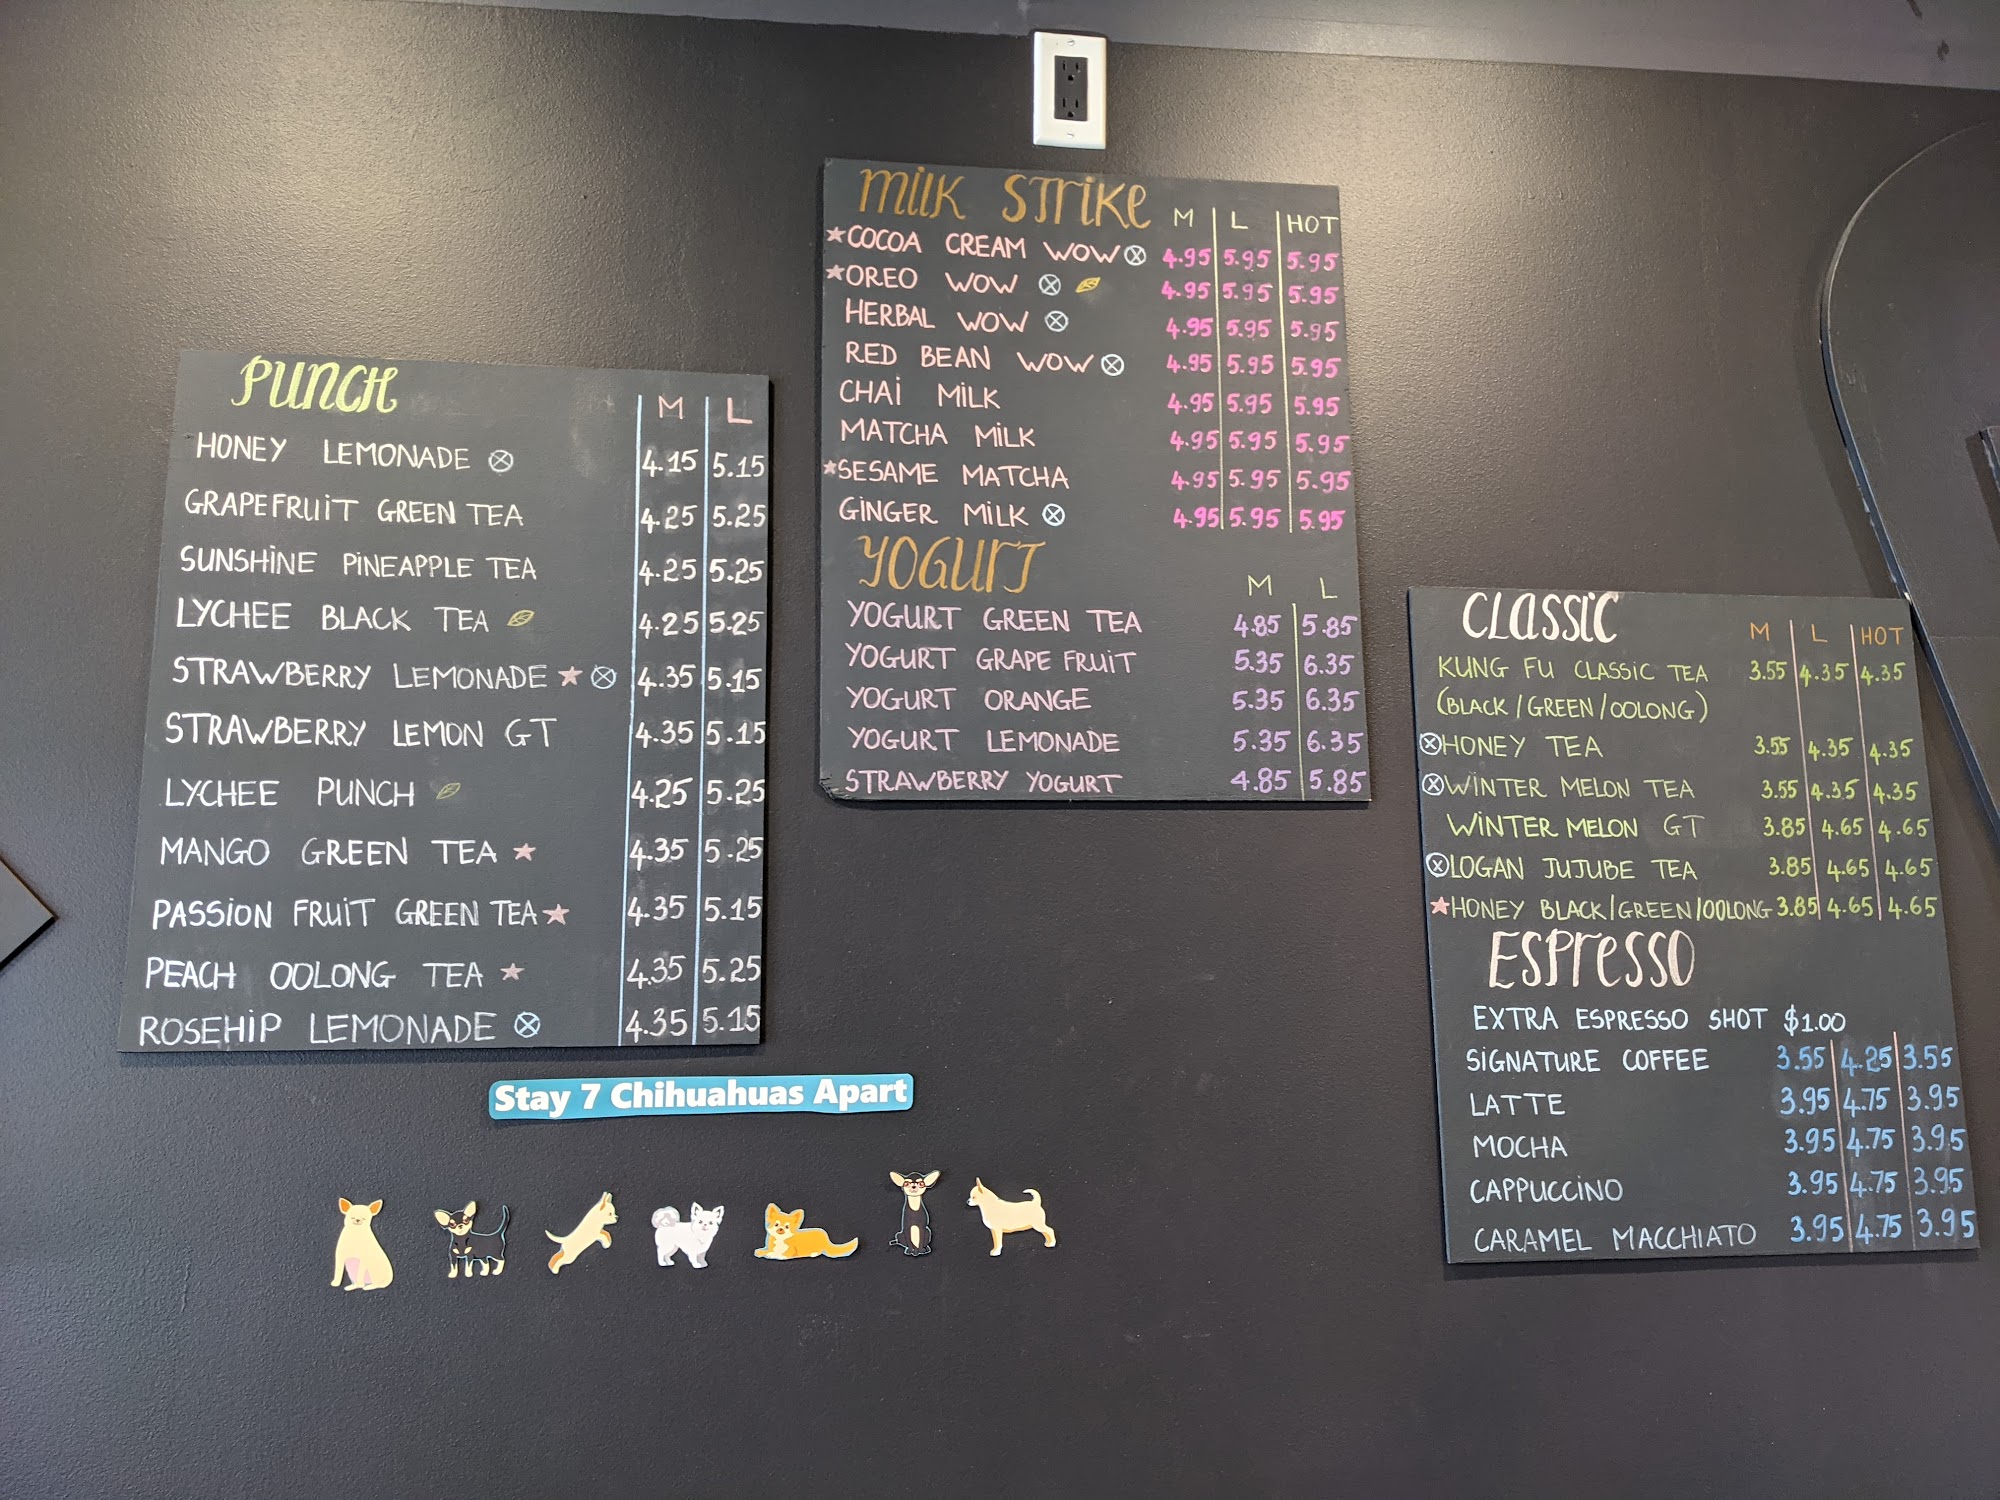 PUNCH M L
HONEY LEMONADE ⊗ 4.15 5.15
GRAPEFRUIT GREEN TEA 4.25 5.25
SUNSHINE PINEAPPLE TEA 4.25 5.25
LYCHEE BLACK TEA 4.25 5.25
STRAWBERRY LEMONADE ★ ⊗ 4.35 5.15
STRAWBERRY LEMON GT 4.35 5.15
LYCHEE PUNCH 4.25 5.25
MANGO GREEN TEA ★ 4.35 5.25
PASSION FRUIT GREEN TEA ★ 4.35 5.15
PEACH OOLONG TEA ★ 4.35 5.25
ROSEHIP LEMONADE ⊗ 4.35 5.15
MILK STRIKE M L HOT
★COCOA CREAM WOW ⊗ 4.95 5.95 5.95
★OREO WOW ⊗ 4.95 5.95 5.95
HERBAL WOW ⊗ 4.95 5.95 5.95
RED BEAN WOW ⊗ 4.95 5.95 5.95
CHAI MILK 4.95 5.95 5.95
MATCHA MILK 4.95 5.95 5.95
★SESAME MATCHA 4.95 5.95 5.95
GINGER MILK ⊗ 4.95 5.95 5.95
YOGURT M L
YOGURT GREEN TEA 4.85 5.85
YOGURT GRAPE FRUIT 5.35 6.35
YOGURT ORANGE 5.35 6.35
YOGURT LEMONADE 5.35 6.35
STRAWBERRY YOGURT 4.85 5.85
CLASSIC M L HOT
KUNG FU CLASSIC TEA 3.55 4.35 4.35
(BLACK/GREEN/OOLONG)
⊗HONEY TEA 3.55 4.35 4.35
⊗WINTER MELON TEA 3.55 4.35 4.35
WINTER MELON GT 3.85 4.65 4.65
⊗LOGAN JUJUBE TEA 3.85 4.65 4.65
★HONEY BLACK/GREEN/OOLONG 3.85 4.65 4.65
ESPRESSO
EXTRA ESPRESSO SHOT $1.00
SIGNATURE COFFEE 3.55 4.25 3.55
LATTE 3.95 4.75 3.95
MOCHA 3.95 4.75 3.95
CAPPUCCINO 3.95 4.75 3.95
CARAMEL MACCHIATO 3.95 4.75 3.95
Stay 7 Chihuahuas Apart